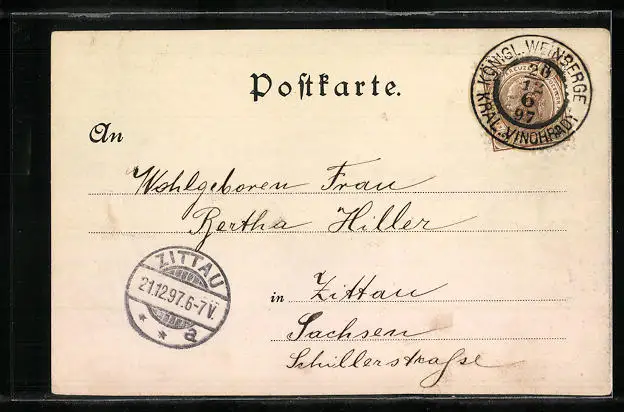 Postkarte.
KÖNIGL. WEINBERGE
20
12
6
97
KRÁL. VINOHRADY
An
Wohlgeboren Frau
Bertha Hiller
ZITTAU
21.12.97.6-7V.
* * a
in Zittau
Sachsen
Schillerstraße